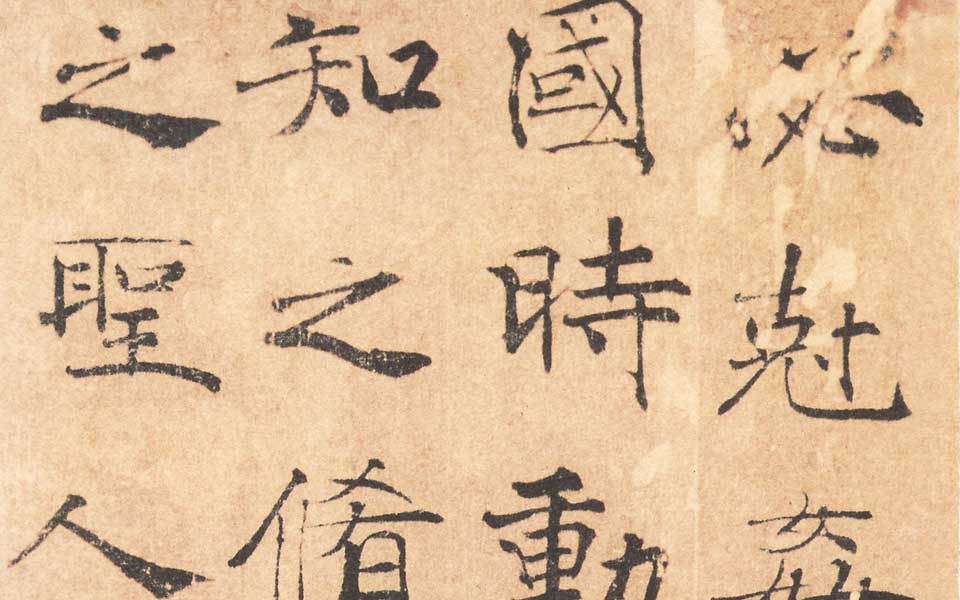 必尅姦
國時動
知之脩
之聖人